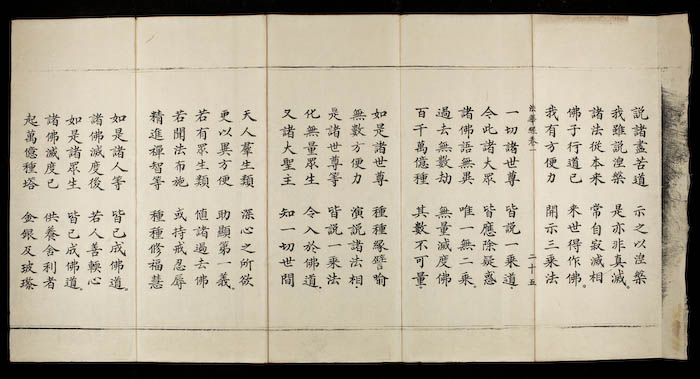 說諸盡苦道 示之以涅槃
我雖說涅槃 是亦非真滅。
諸法從本來 常自寂滅相
佛子行道已 來世得作佛。
我有方便力 開示三乘法
法華經卷一 二十五
一切諸世尊 皆說一乘道。
令此諸大眾 皆應除疑惑
諸佛語無異 唯一無二乘。
過去無數劫 無量滅度佛
百千萬億種 其數不可量。
如是諸世尊 種種緣譬喻
無數方便力 演說諸法相。
是諸世尊等 皆說一乘法
化無量眾生 令入於佛道。
又諸大聖主 知一切世間
天人羣生類 深心之所欲
更以異方便 助顯第一義。
若有眾生類 值諸過去佛
若聞法布施 或持戒忍辱
精進禪智等 種種修福慧
如是諸人等 皆已成佛道。
諸佛滅度後 若人善輭心
如是諸眾生 皆已成佛道。
諸佛滅度已 供養舍利者
起萬億種塔 金銀及玻瓈